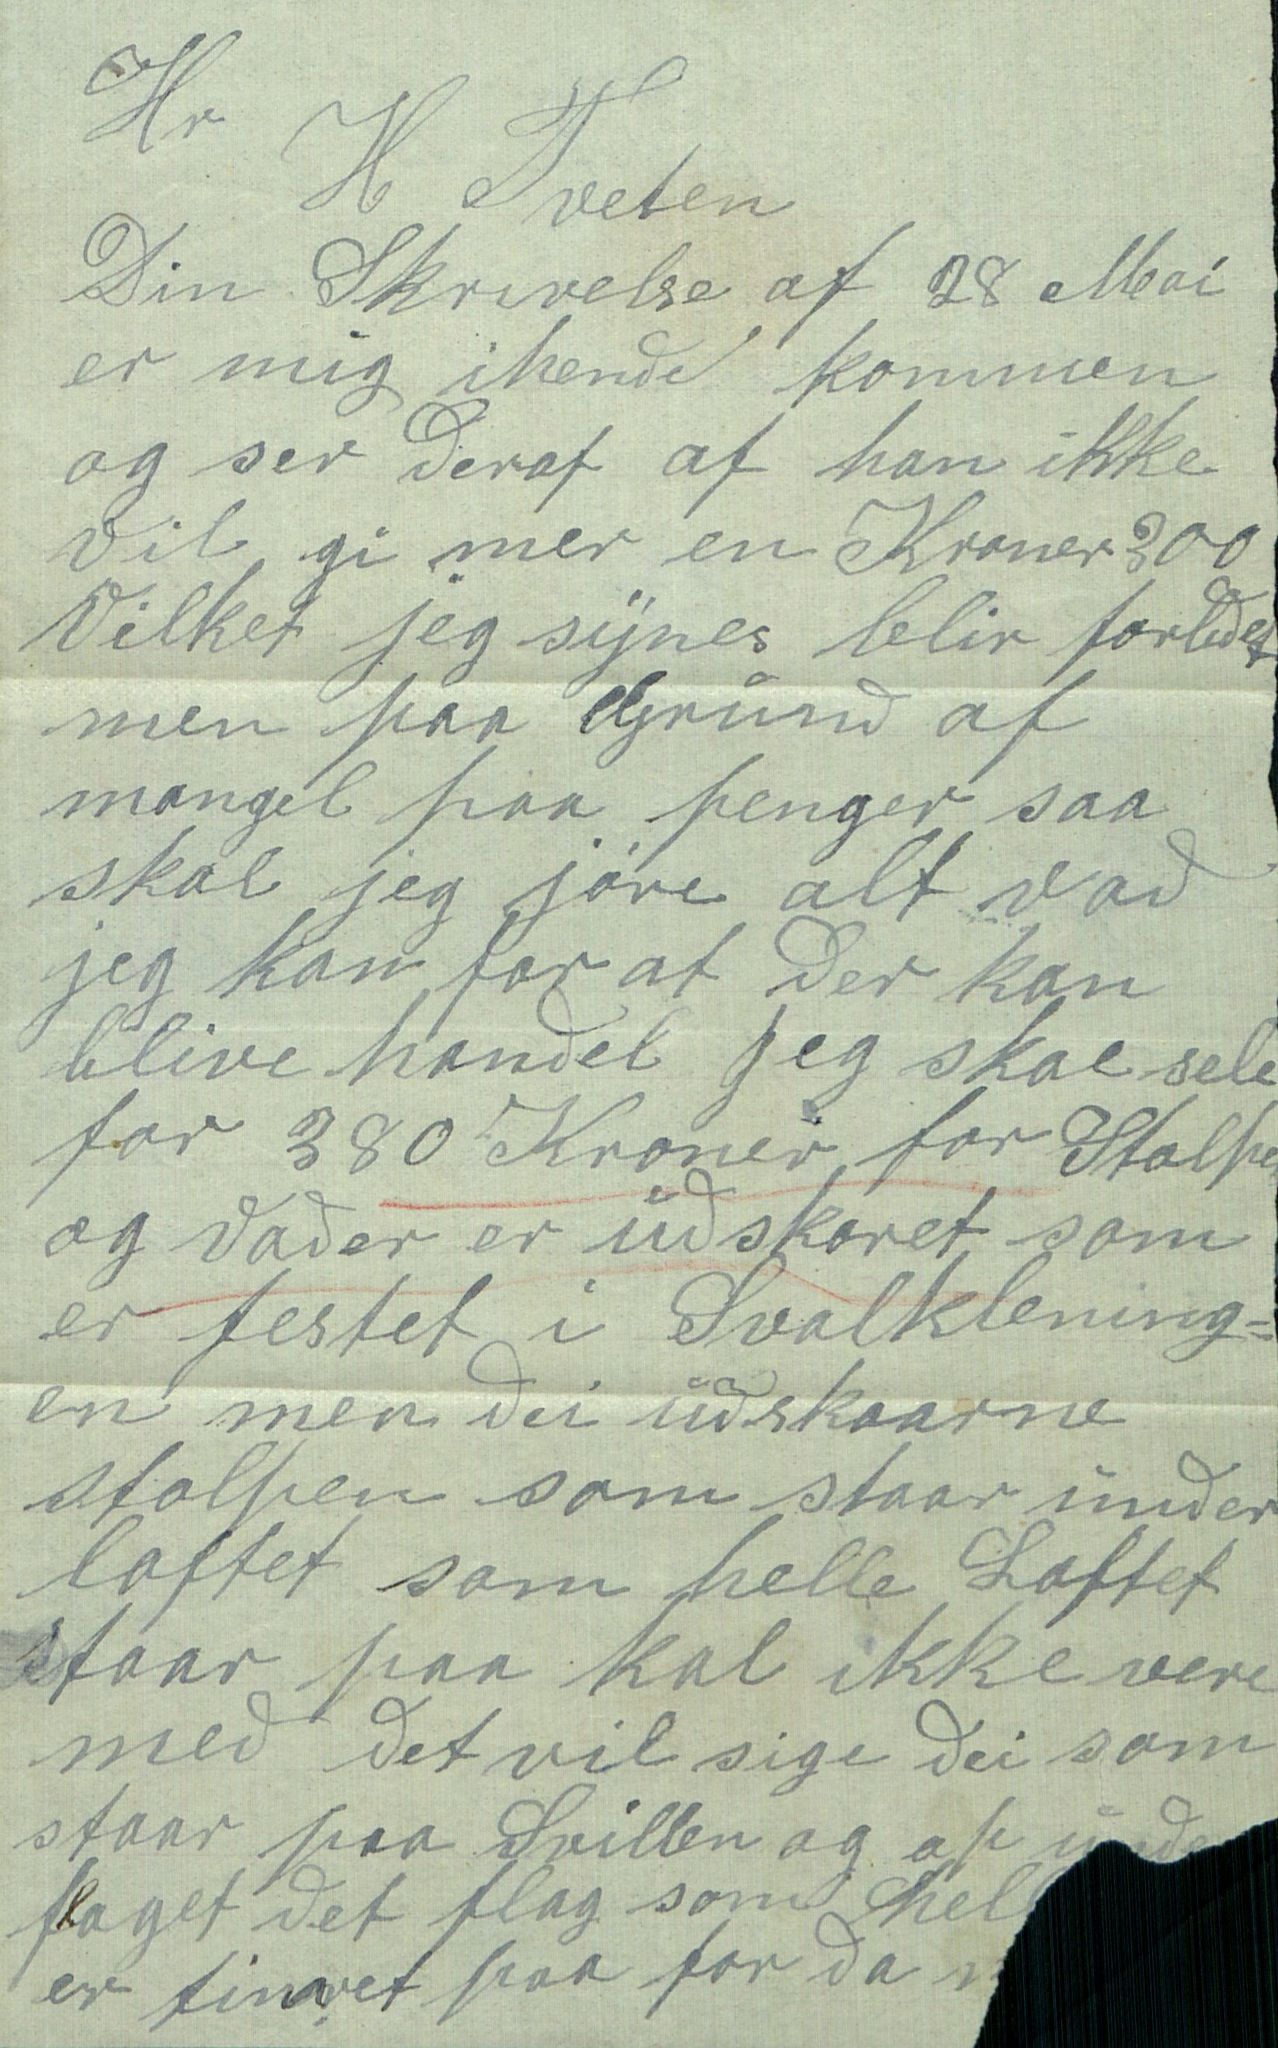 Hr
H Tveten
Din Skrivelse af 28 Mai
er mig ihende kommen
og ser deraf af han ikke
vil gi mer en Kroner 300
Vilket jeg synes blir forlidet
men paa Grund af
mangel paa penger saa
skal jeg jöre alt vad
jeg kan for at der kan
blive handel jeg skal sele
for 380 Kroner for Stolpe
og Vader er udskoret som
er festet i Svalklening=
en men dei udskaarne
stolpen som staar under
loftet som helle Loftet
staar paa kal ikke vere
med det vil sige dei som
staar paa Svillen og op unde
flaget det flag som hell
er tinret paa for da